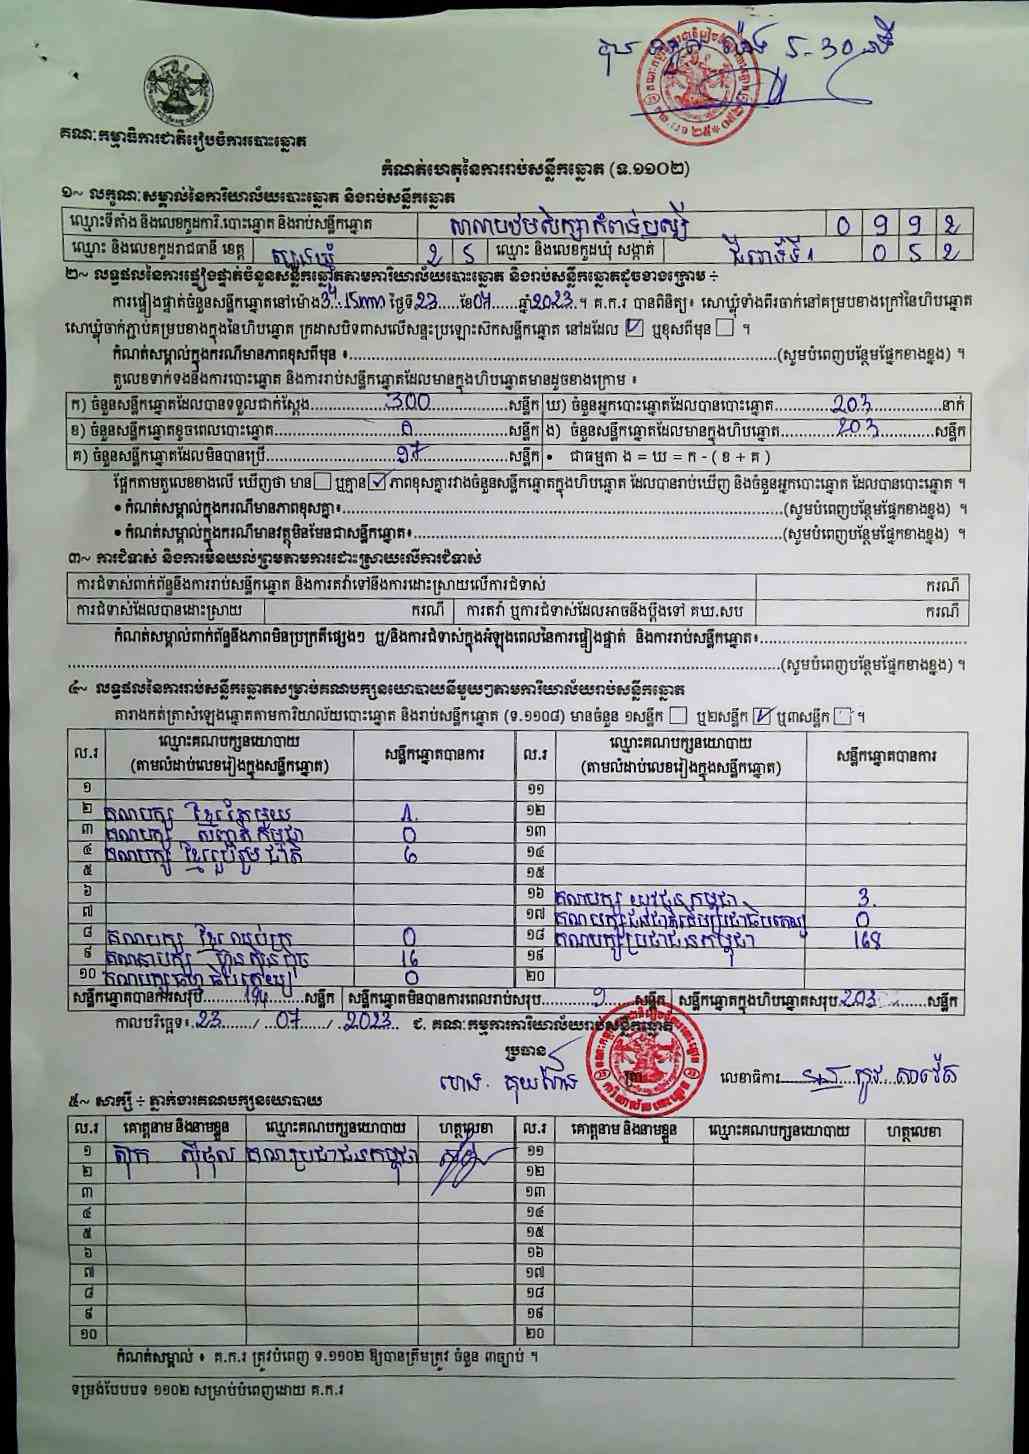 ម៉ោង ៥-30 នាទី
គណៈកម្មាធិការជាតិរៀបចំការបោះឆ្នោត
កំណត់ហេតុនៃការរាប់សន្លឹកឆ្នោត (ទ.១១០២)
១~ លក្ខណៈសម្គាល់នៃការិយាល័យបោះឆ្នោត និងរាប់សន្លឹកឆ្នោត
ឈ្មោះទីតាំង និងលេខកូដការិ.បោះឆ្នោត និងរាប់សន្លឹកឆ្នោត សាលាបឋមសិក្សាកំពង់ឫស្សី 0 9 9 2
ឈ្មោះ និងលេខកូដរាជធានី ខេត្ត ត្បូងឃ្មុំ 2 5 ឈ្មោះ និងលេខកូដឃុំ សង្កាត់ 0 5 2
២~ លទ្ធផលនៃការផ្ទៀងផ្ទាត់ចំនួនសន្លឹកឆ្នោតតាមការិយាល័យបោះឆ្នោត និងរាប់សន្លឹកឆ្នោតដូចខាងក្រោម ÷
ការផ្ទៀងផ្ទាត់ចំនួនសន្លឹកឆ្នោតនៅម៉ោង 3h 15mn ថ្ងៃទី 23 ខែ 07 ឆ្នាំ 2023 ។ គ.ក.រ បានពិនិត្យ៖ សោឃ្លុំទាំងពីរចាក់នៅគម្របខាងក្រៅនៃហិបឆ្នោត
សោឃ្លុំចាក់ភ្ជាប់គម្របខាងក្នុងនៃហិបឆ្នោត ក្រដាសបិទពាសលើសន្ទះប្រឡោះស៊កសន្លឹកឆ្នោត នៅដដែល ☑ ឬខុសពីមុន ☐ ។
កំណត់សម្គាល់ក្នុងករណីមានភាពខុសពីមុន ៖ (សូមបំពេញបន្ថែមផ្នែកខាងខ្នង) ។
តួលេខទាក់ទងនឹងការបោះឆ្នោត និងការរាប់សន្លឹកឆ្នោតដែលមានក្នុងហិបឆ្នោតមានដូចខាងក្រោម ៖
ក) ចំនួនសន្លឹកឆ្នោតដែលបានទទួលជាក់ស្តែង 300 សន្លឹក ឃ) ចំនួនអ្នកបោះឆ្នោតដែលបានបោះឆ្នោត 203 នាក់
ខ) ចំនួនសន្លឹកឆ្នោតខូចពេលបោះឆ្នោត សន្លឹក ង) ចំនួនសន្លឹកឆ្នោតដែលមានក្នុងហិបឆ្នោត 203 សន្លឹក
គ) ចំនួនសន្លឹកឆ្នោតដែលមិនបានប្រើ 97 សន្លឹក • ជាធម្មតា ង = ឃ = ក - ( ខ + គ )
ផ្អែកតាមតួលេខខាងលើ ឃើញថា មាន ☐ ឬគ្មាន ☑ ភាពខុសគ្នារវាងចំនួនសន្លឹកឆ្នោតក្នុងហិបឆ្នោត ដែលបានរាប់ឃើញ និងចំនួនអ្នកបោះឆ្នោត ដែលបានបោះឆ្នោត ។
• កំណត់សម្គាល់ក្នុងករណីមានភាពខុសគ្នា៖ (សូមបំពេញបន្ថែមផ្នែកខាងខ្នង) ។
• កំណត់សម្គាល់ក្នុងករណីមានវត្ថុមិនមែនជាសន្លឹកឆ្នោត៖ (សូមបំពេញបន្ថែមផ្នែកខាងខ្នង) ។
៣~ ការជំទាស់ និងការមិនយល់ព្រមតាមការដោះស្រាយលើការជំទាស់
ការជំទាស់ពាក់ព័ន្ធនឹងការរាប់សន្លឹកឆ្នោត និងការតវ៉ាទៅនឹងការដោះស្រាយលើការជំទាស់ ករណី
ការជំទាស់ដែលបានដោះស្រាយ ករណី ការតវ៉ា ឬការជំទាស់ដែលអាចនឹងប្តឹងទៅ គឃ.សប ករណី
កំណត់សម្គាល់ពាក់ព័ន្ធនឹងភាពមិនប្រក្រតីផ្សេងៗ ឬ/និងការជំទាស់ក្នុងអំឡុងពេលនៃការផ្ទៀងផ្ទាត់ និងការរាប់សន្លឹកឆ្នោត៖
(សូមបំពេញបន្ថែមផ្នែកខាងខ្នង) ។
៤~ លទ្ធផលនៃការរាប់សន្លឹកឆ្នោតសម្រាប់គណបក្សនយោបាយនីមួយៗតាមការិយាល័យរាប់សន្លឹកឆ្នោត
តារាងកត់ត្រាសំឡេងឆ្នោតតាមការិយាល័យបោះឆ្នោត និងរាប់សន្លឹកឆ្នោត (ទ.១១០៨) មានចំនួន ១សន្លឹក ☐ ឬ២សន្លឹក ☑ ឬ៣សន្លឹក ☐ ។
ល.រ ឈ្មោះគណបក្សនយោបាយ (តាមលំដាប់លេខរៀងក្នុងសន្លឹកឆ្នោត) សន្លឹកឆ្នោតបានការ ល.រ ឈ្មោះគណបក្សនយោបាយ (តាមលំដាប់លេខរៀងក្នុងសន្លឹកឆ្នោត) សន្លឹកឆ្នោតបានការ
១ ១១
២ គណបក្ស ខ្មែរតែមួយ ១២
៣ គណបក្ស សញ្ជាតិកម្ពុជា 0 ១៣
៤ គណបក្ស ខ្មែររួបរួមជាតិ 6 ១៤
៥ ១៥
៦ ១៦ គណបក្ស យុវជនកម្ពុជា 3
៧ ១៧ 0
៨ គណបក្ស 0 ១៨ គណបក្សប្រជាជនកម្ពុជា 168
៩ គណបក្ស ហ៊្វុនស៊ិនប៉ិច 16 ១៩
១០ គណបក្សធម្មាធិបតេយ្យ 0 ២០
សន្លឹកឆ្នោតបានការសរុប 194 សន្លឹក សន្លឹកឆ្នោតមិនបានការពេលរាប់សរុប 9 សន្លឹក សន្លឹកឆ្នោតក្នុងហិបឆ្នោតសរុប 203 សន្លឹក
កាលបរិច្ឆេទ៖ 23 / 07 / 2023 ជ. គណៈកម្មការការិយាល័យរាប់សន្លឹកឆ្នោត
ប្រធាន
លេខាធិការ
៥~ សាក្សី ÷ ភ្នាក់ងារគណបក្សនយោបាយ
ល.រ គោត្តនាម និងនាមខ្លួន ឈ្មោះគណបក្សនយោបាយ ហត្ថលេខា ល.រ គោត្តនាម និងនាមខ្លួន ឈ្មោះគណបក្សនយោបាយ ហត្ថលេខា
១ គណប្រជាជនកម្ពុជា ១១
២ ១២
៣ ១៣
៤ ១៤
៥ ១៥
៦ ១៦
៧ ១៧
៨ ១៨
៩ ១៩
១០ ២០
កំណត់សម្គាល់ ៖ គ.ក.រ ត្រូវបំពេញ ទ.១១០២ ឱ្យបានត្រឹមត្រូវ ចំនួន ៣ច្បាប់ ។
ទម្រង់បែបបទ ១១០២ សម្រាប់បំពេញដោយ គ.ក.រ